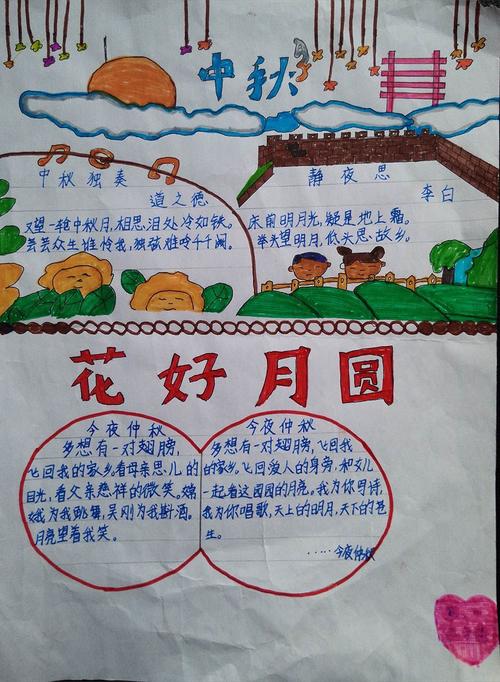 中秋
中秋独奏
道之德
又望一轮中秋月,相思泪处冷如铁。
芸芸众生谁怜我,独弦难吟千千阕。
静夜思
李白
床前明月光,疑是地上霜。
举头望明月,低头思故乡。
花好月圆
今夜仲秋
多想有一对翅膀,
飞回我的家乡。看母亲思儿的
目光,看父亲慈祥的微笑。嫦
娥为我跳舞,吴刚为我斟酒。
月亮望着我笑。
今夜仲秋
多想有一对翅膀,飞回我
的家乡。飞回爱人的身旁,和女儿
一起看这园园的月亮。我为你写诗,
我为你唱歌,天上的明月,天下的苍
生。
……今夜仲秋